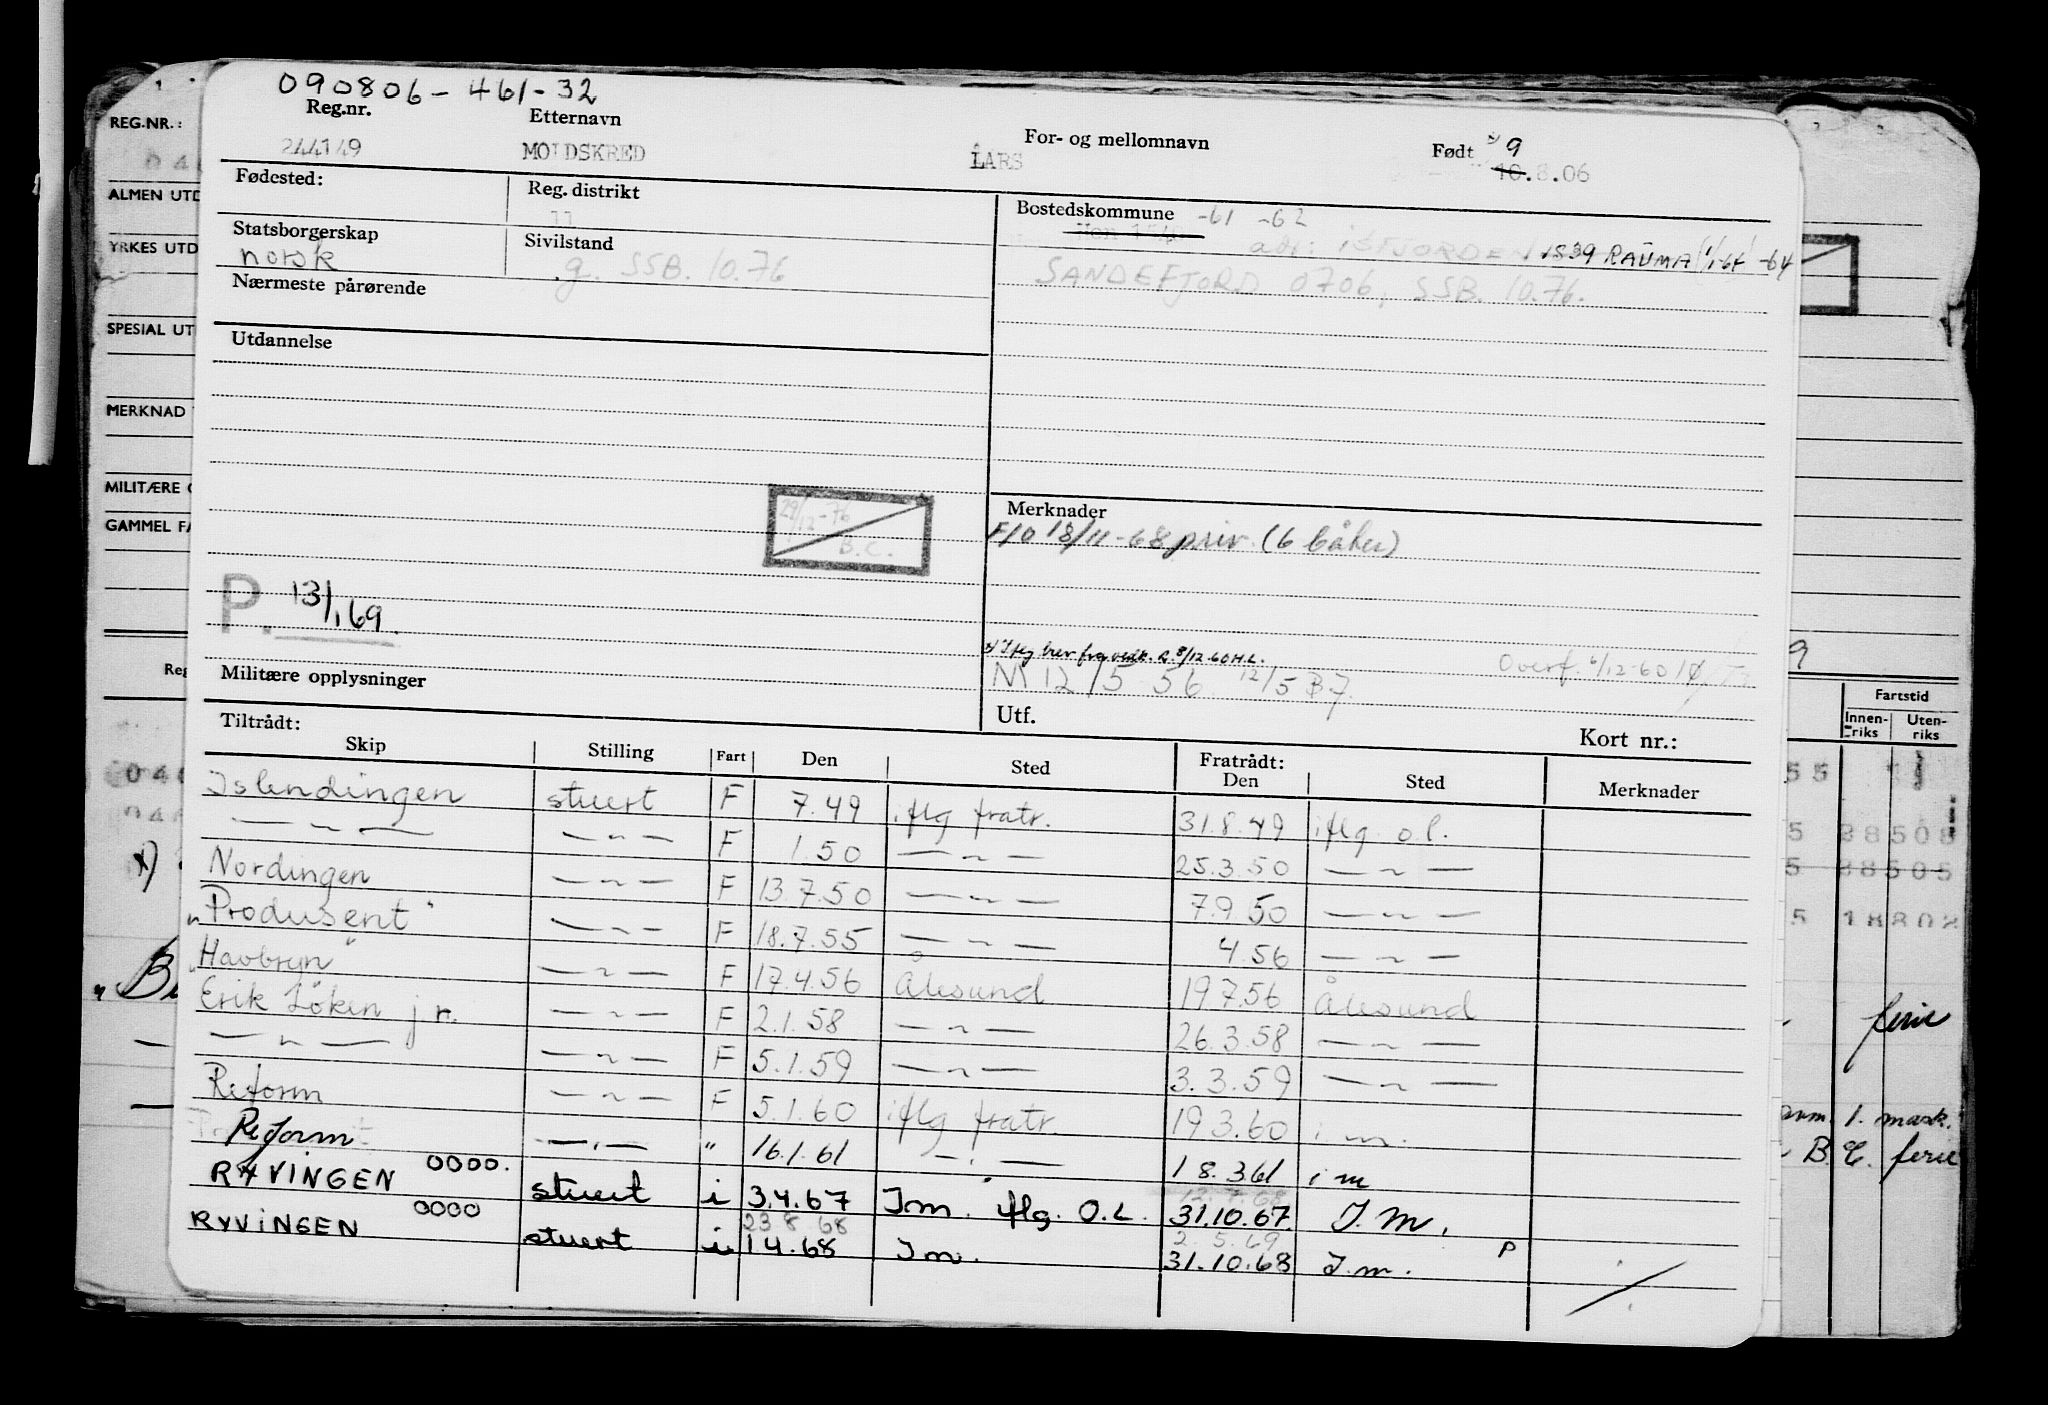 090806-461-32
Reg.nr. Etternavn For- og mellomnavn Født 9
244149 MOLDSKRED LARS 10.8.06
Fødested: Reg. distrikt Bostedskommune -61 -62
11 adr: ISFJORDEN 1539 RAUMA -64
Statsborgerskap Sivilstand
norsk g. SSB. 10.76 SANDEFJORD 0706, SSB. 10.76.
Nærmeste pårørende
Utdannelse
29/12-76
B.C.
Merknader
F/O 18/11-68 priv. (6 båter)
P. 13/1 69
brev fra 8/12-60 H.L.
Overf. 6/12-60
M 12/5 56 12/5 57.
Militære opplysninger Utf. Kort nr.:
Tiltrådt: Fratrådt:
Skip Stilling Fart Den Sted Den Sted Merknader
Islendingen stuert F 7.49 iflg fratr. 31.8.49 iflg o l.
— " — — " — F 1.50 — " — 25.3.50 — " —
Nordingen — " — F 13.7.50 — " — 7.9.50 — " —
"Produsent" — " — F 18.7.55 — " — 4.56 — " —
"Havbryn" — " — F 17.4.56 Ålesund 19.7.56 Ålesund
Erik Löken jr. — " — F 2.1.58 — " — 26.3.58 — " —
— " — — " — F 5.1.59 — " — 3.3.59 — " —
Reform — " — F 5.1.60 iflg fratr. 19.3.60 i m.
Reform — " — " 16.1.61 — " — 18.3.61 i m
RYVINGEN 0000. stuert i 3.4.67 I m. iflg. O.L. 31.10.67. I. M.
23 8 68 2.5.69
RYVINGEN 0000 stuert i 1 4.68 I m. 31.10.68 I. m. P
REG.NR.:
ALMEN UTD
YRKES UTD
SPESIAL UT
MERKNAD
MILITÆRE
GAMMEL FA
Reg
9
Fartstid
Innenriks Utenriks
ferie
1. mask.
B. C. ferie